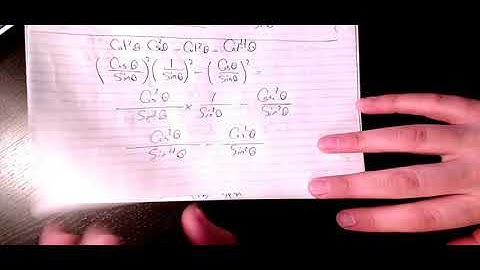 Cot²θ Csc²θ - Cot²θ = Cot⁴θ
(Cosθ/Sinθ)² (1/Sinθ)² - (Cosθ/Sinθ)² =
Cos²θ/Sin²θ × 1/Sin²θ - Cos²θ/Sin²θ
Cos²θ/Sin⁴θ - Cos²θ/Sin²θ